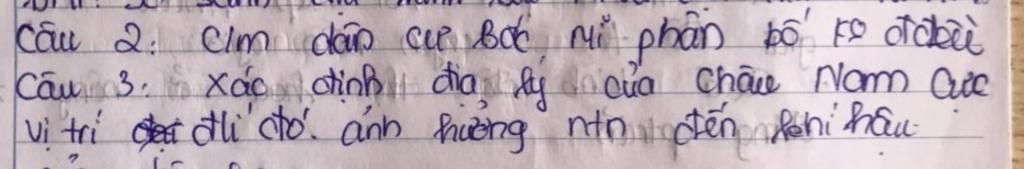 Câu 2: C/m dân cư Bắc Mĩ phân bố ko đều
Câu 3: Xác định địa lý của Châu Nam Cực
vị trí đlí đó. ảnh hưởng ntn đến khí hậu